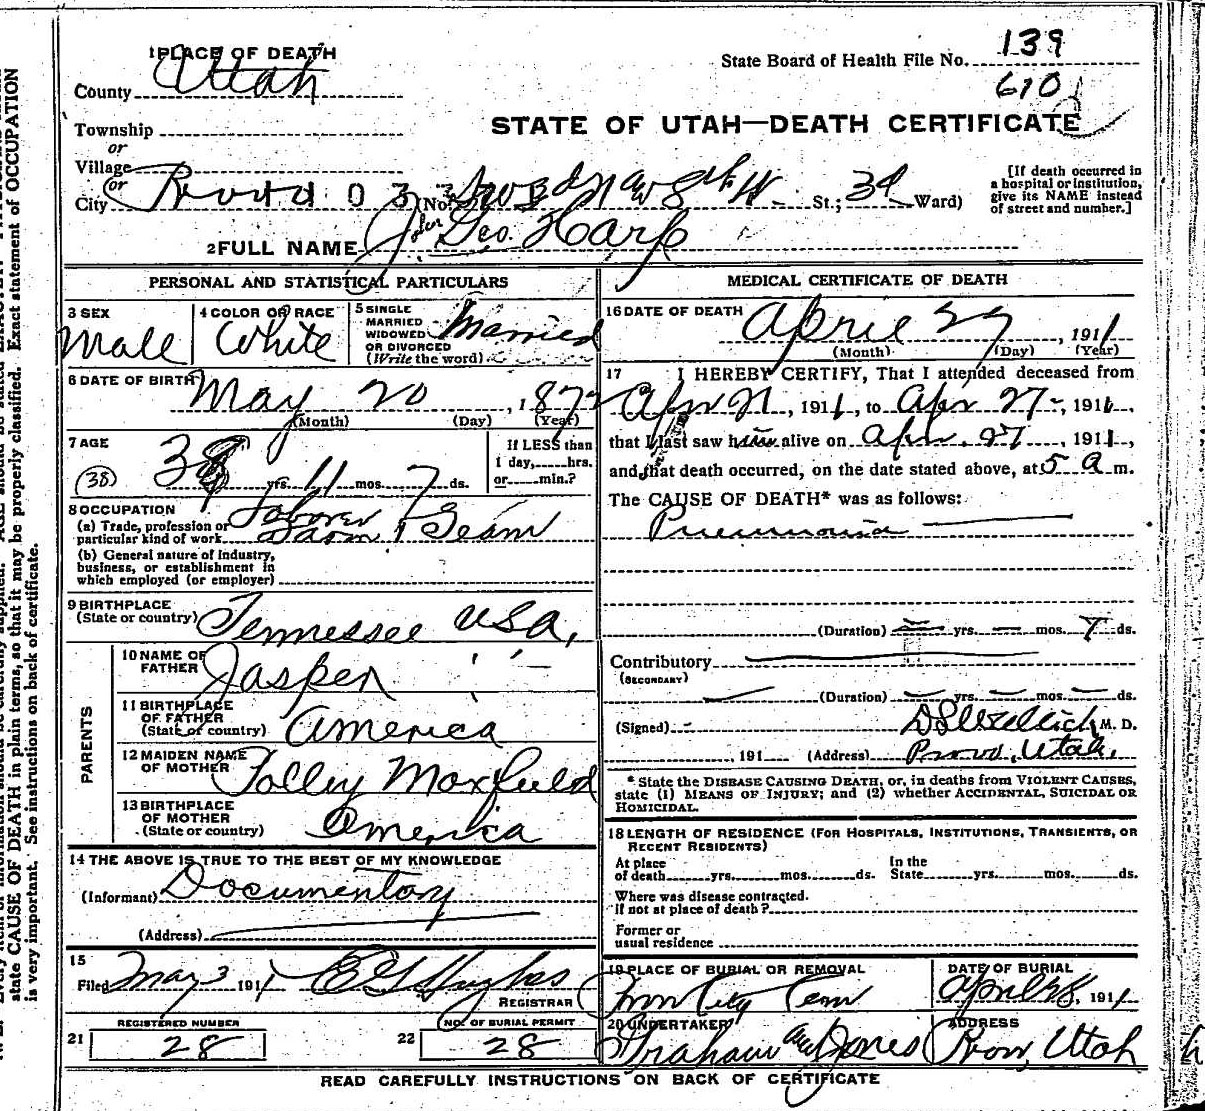 1 PLACE OF DEATH
State Board of Health File No. 139
County Utah
610
Township
or
STATE OF UTAH—DEATH CERTIFICATE
Village
or
City Provo 033 No. St.; 3d Ward)
[If death occurred in
a hospital or institution,
give its NAME instead
of street and number.]
2 FULL NAME J. Geo. Harp
PERSONAL AND STATISTICAL PARTICULARS
3 SEX
Male
4 COLOR OR RACE
White
5 SINGLE
MARRIED
WIDOWED
OR DIVORCED
(Write the word)
Married
6 DATE OF BIRTH
May 20, 1872
(Month) (Day) (Year)
7 AGE
38 yrs. 11 mos. 7 ds.
(38)
If LESS than
1 day, hrs.
or min.?
8 OCCUPATION
(a) Trade, profession or
particular kind of work
Laborer
Farm & Team
(b) General nature of industry,
business, or establishment in
which employed (or employer)
9 BIRTHPLACE
(State or country) Tennessee USA,
PARENTS
10 NAME OF
FATHER Jasper
11 BIRTHPLACE
OF FATHER
(State or country) America
12 MAIDEN NAME
OF MOTHER
13 BIRTHPLACE
OF MOTHER
(State or country) America
14 THE ABOVE IS TRUE TO THE BEST OF MY KNOWLEDGE
(Informant) Documentary
(Address)
15
Filed May 3 1911 Hughes
REGISTRAR
REGISTERED NUMBER
21 28
NO. OF BURIAL PERMIT
22 28
MEDICAL CERTIFICATE OF DEATH
16 DATE OF DEATH
April 27, 1911
(Month) (Day) (Year)
17 I HEREBY CERTIFY, That I attended deceased from
Apr 21, 1911, to Apr 27, 1911,
that I last saw him alive on Apr. 27, 1911,
and that death occurred, on the date stated above, at 5 a m.
The CAUSE OF DEATH* was as follows:
Pneumonia
(Duration) yrs. mos. 7 ds.
Contributory
(SECONDARY)
(Duration) yrs. mos. ds.
(Signed) M. D.
191 (Address) Provo, Utah.
* State the DISEASE CAUSING DEATH, or, in deaths from VIOLENT CAUSES,
state (1) MEANS OF INJURY; and (2) whether ACCIDENTAL, SUICIDAL OR
HOMICIDAL.
18 LENGTH OF RESIDENCE (FOR HOSPITALS, INSTITUTIONS, TRANSIENTS, OR
RECENT RESIDENTS)
At place
of death yrs. mos. ds.
In the
State yrs. mos. ds.
Where was disease contracted.
if not at place of death?
Former or
usual residence
19 PLACE OF BURIAL OR REMOVAL
City Cem
DATE OF BURIAL
April 28, 1911
20 UNDERTAKER
Graham and Jones
ADDRESS
Provo, Utah
READ CAREFULLY INSTRUCTIONS ON BACK OF CERTIFICATE
Exact statement of OCCUPATION
state CAUSE OF DEATH in plain terms, so that it may be properly classified.
is very important. See instructions on back of certificate.